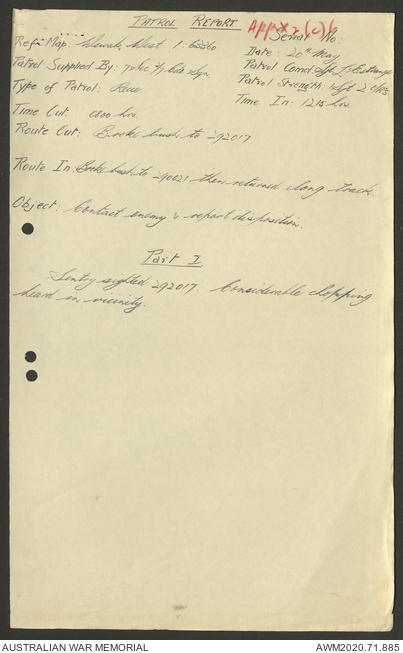 PATROL REPORT
Appx 2(c)6
Ref: Map: Wewak West 1:63360
Serial No:
Date: 20th May
Patrol Supplied By: 7 Sec
Patrol Comd Sgt
Patrol Strength: 1 Sgt 2 O/Rs
Type of Patrol: Recce
Time In: 1215 hrs
Time Out: hrs.
Route Out: bush to 292017
Route In: bush to 290021 then returned along track.
Object: Contact enemy & report disposition.
Part I
Sentry sighted 292017. Considerable chopping
heard in vicinity.
AUSTRALIAN WAR MEMORIAL
AWM2020.71.885